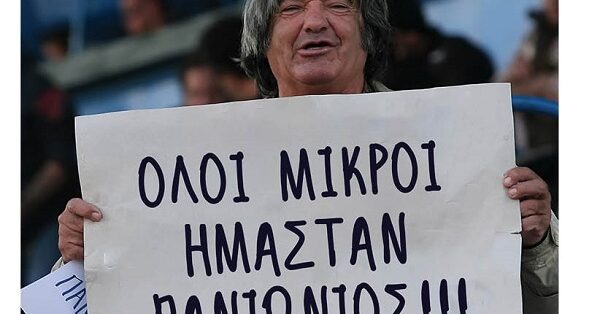 ΟΛΟΙ ΜΙΚΡΟΙ
ΗΜΑΣΤΑΝ
ΠΑΝΙΩΝΙΟΣ!!!
ΠΑΝ